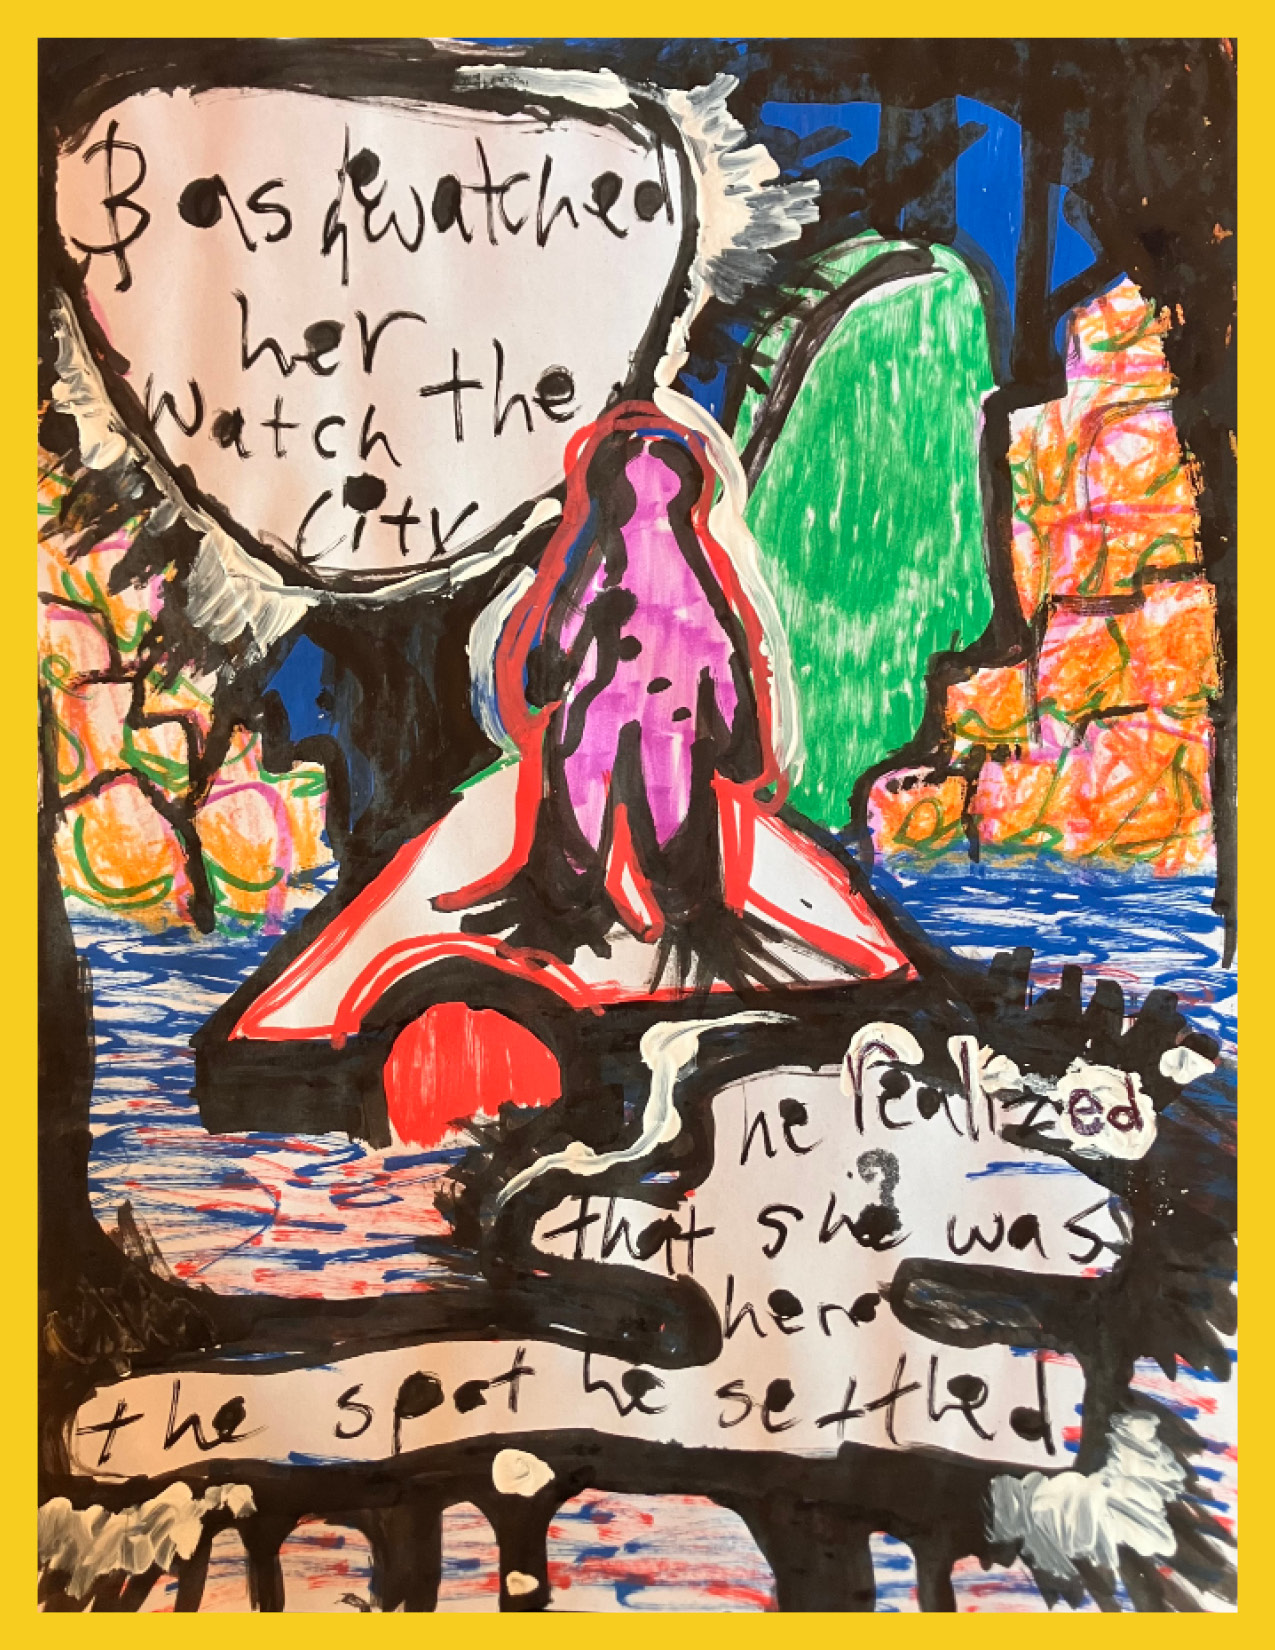 B as he watched
her
watch the
city
he realized
?
that she was
here
the spot he settled